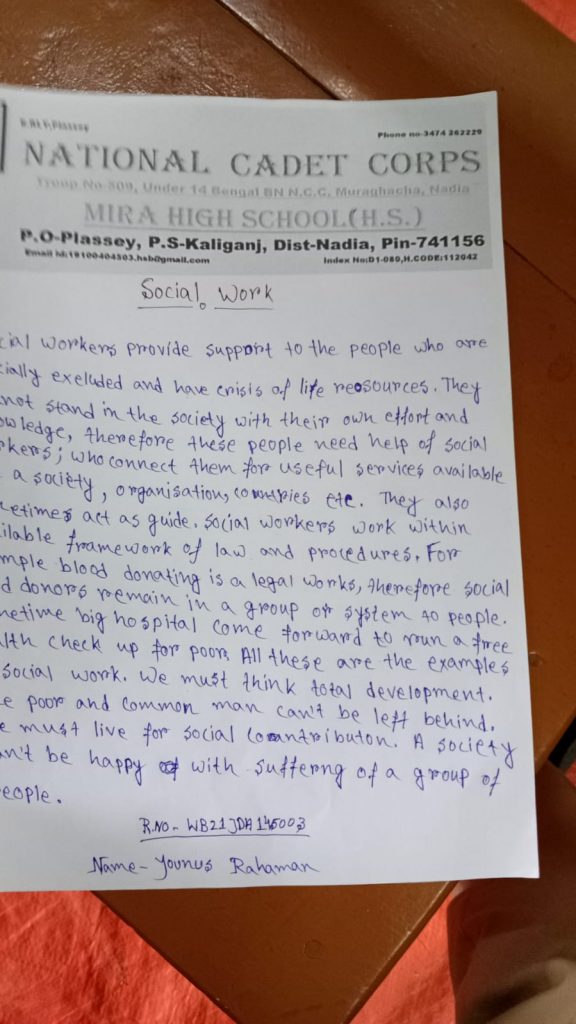 Phone no-3474 262229
NATIONAL CADET CORPS
Troop No-509, Under 14 Bengal BN N.C.C. Muraghacha, Nadia
MIRA HIGH SCHOOL(H.S.)
P.O-Plassey, P.S-Kaliganj, Dist-Nadia, Pin-741156
Email Id:19100404503.hsb@gmail.com Index No:D1-080,H.CODE:112042
Social Work
cial workers provide support to the people who are
cially exeluded and have crisis of life reosources. They
not stand in the society with their own effort and
owledge, therefore these people need help of social
rkers; who connect them for useful services available
a society, organisation, countries etc. They also
etimes act as guide. social workers work within
ilable framework of law and procedures. For
mple blood donating is a legal works, therefore social
d donors remain in a group or system to people.
metime big hospital come forward to run a free
lth check up for poor. All these are the examples
social work. We must think total development.
e poor and common man can't be left behind.
e must live for social contributon. A society
an't be happy with sufferng of a group of
eople.
R.NO- WB21JDA145003
Name- Younus Rahaman